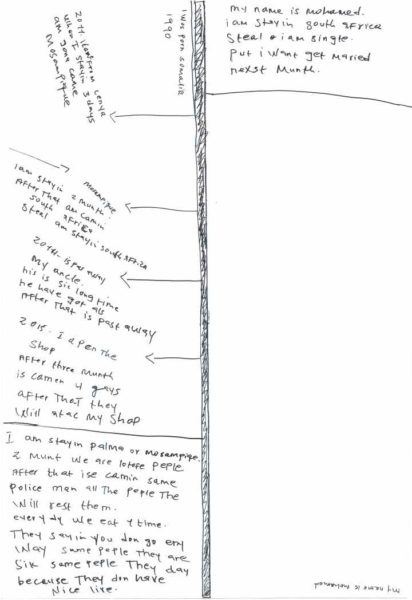 my name is mohamed.
iam stayin south africa
steal & iam single.
put i want get maried
nexst munth.
I wos porn somalia
1990
2011. iam from cenya
when I stayin 3 days
am gona came
Mosampique
mosampique
iam stayin 2 month
After that am camin
south africa
steal am stayin south Africa
is past away
My ancle.
his is sic long time
he have got als
After that is past away
2015. I apen the
Shop
After three munth
is camen 4 gays
after that they
will atac my shop
I am stayin palma or mosampiqe.
2 munt we are lotofe peple
After that ise camin same
police man all the peple the
will rest them.
every dy we eat 1 time.
They say in you don go eny
way same peple they are
sik same peple they day
because they don have
Nice live.
my name is mohamed